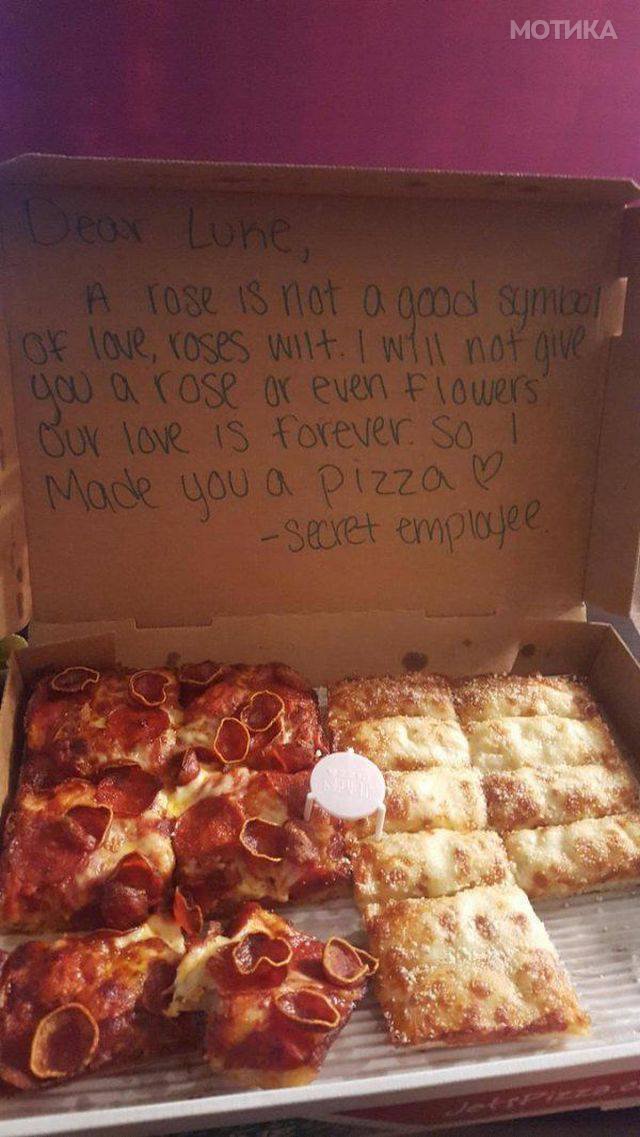 МОТИКА
Dear Luke,
A rose is not a good symbol
of love, roses wilt. I will not give
you a rose or even flowers
our love is forever. So I
Made you a pizza ♡
-secret employee.
JetsPizza.